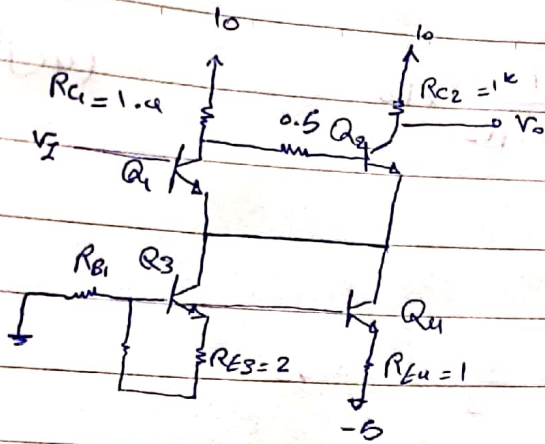 10
10
RC1 = 1.4
RC2 = 1k
0.5
Q2
Vo
VI
Q1
RB1
Q3
Q4
RE3 = 2
RE4 = 1
-5